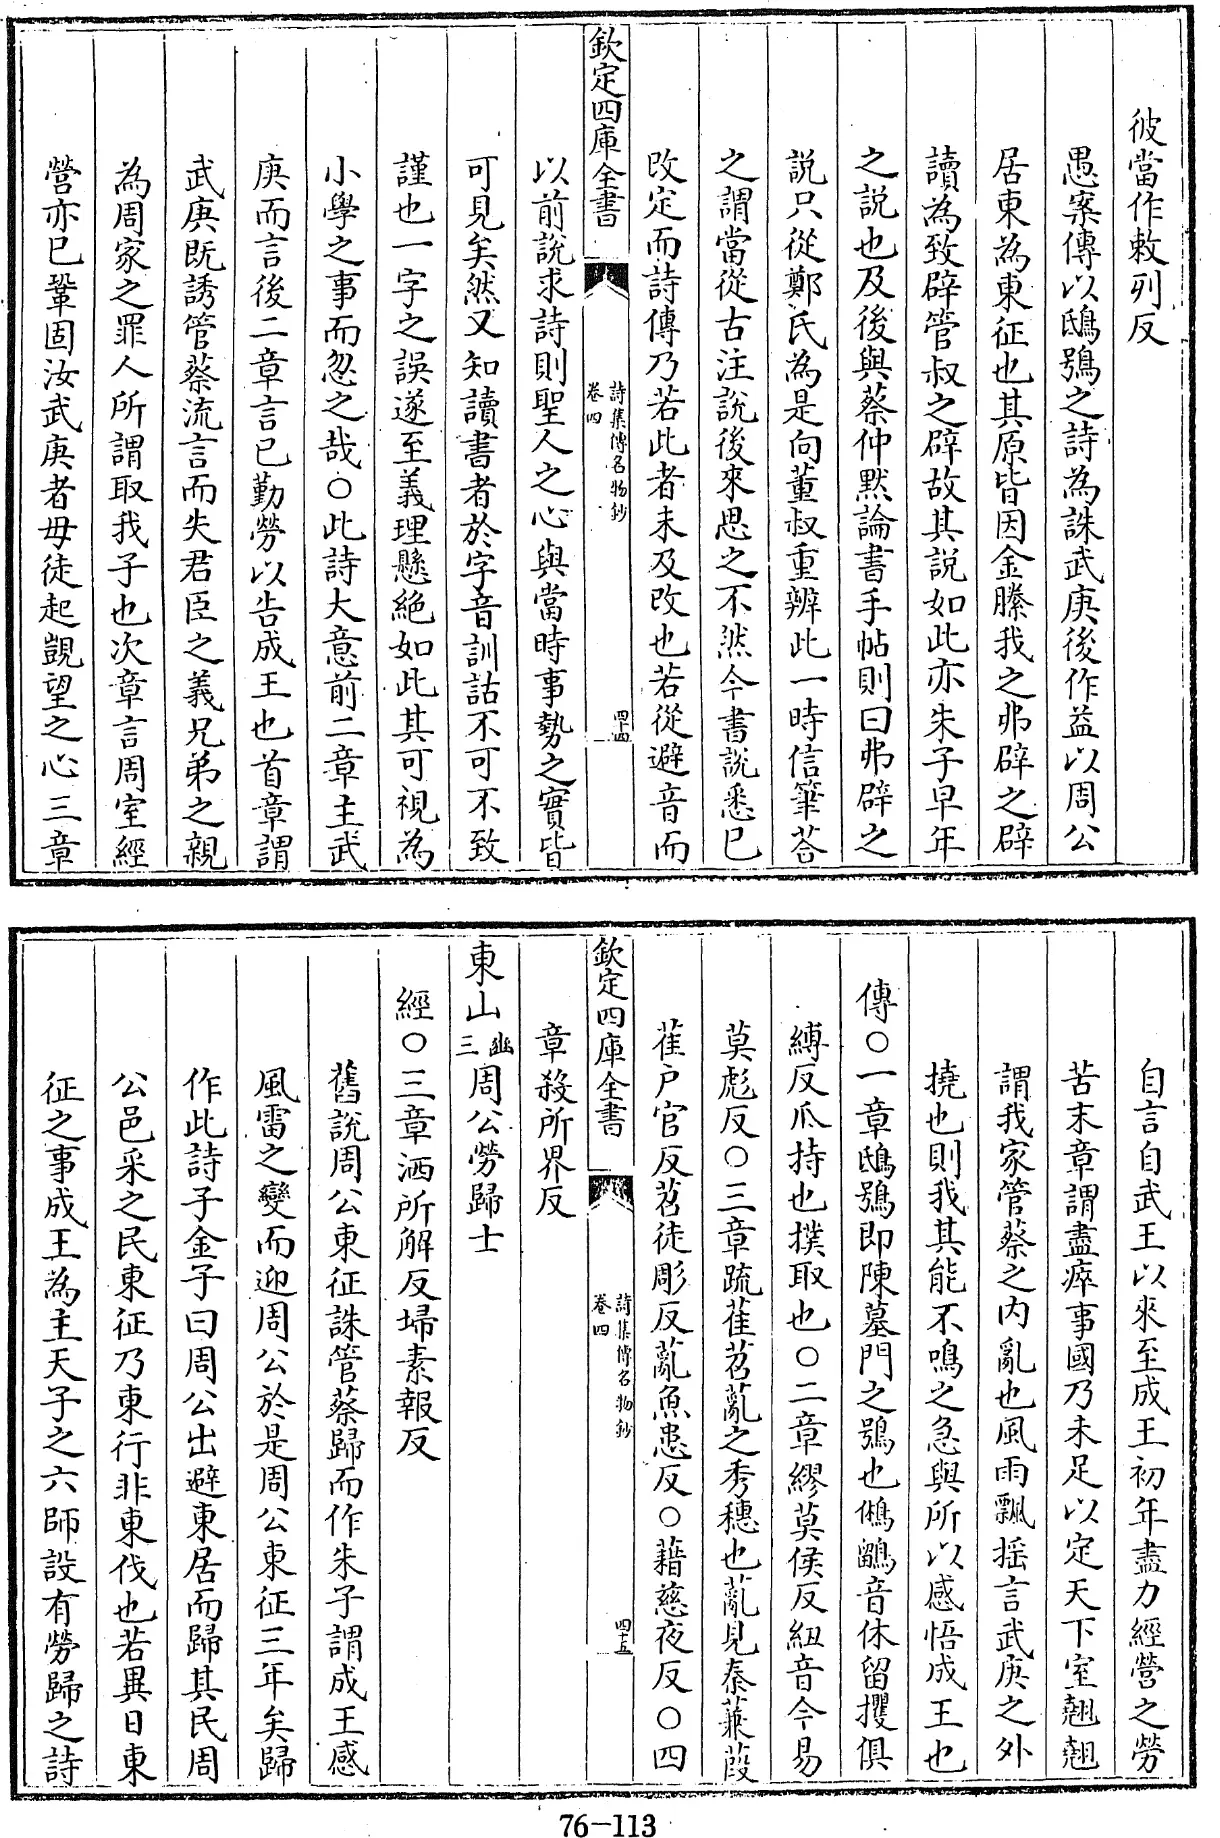 彼當作敕列反
愚案傳以鴟鴞之詩為誅武庚後作益以周公
居東為東征也其原皆因金縢我之弗辟之辟
讀為致辟管叔之辟故其説如此亦朱子早年
之説也及後與蔡仲黙論書手帖則曰弗辟之
説只從鄭氏為是向董叔重辨此一時信筆荅
之謂當從古注説後來思之不然今書説悉已
改定而詩傳乃若此者未及改也若從避音而
欽定四庫全書
詩集傳名物鈔
卷四
四十四
以前説求詩則聖人之心與當時事勢之實皆
可見矣然又知讀書者於字音訓詁不可不致
謹也一字之誤遂至義理懸絶如此其可視為
小學之事而忽之哉○此詩大意前二章主武
庚而言後二章言已勤勞以告成王也首章謂
武庚既誘管蔡流言而失君臣之義兄弟之親
為周家之罪人所謂取我子也次章言周室經
營亦已鞏固汝武庚者毋徒起覬望之心三章
自言自武王以來至成王初年盡力經營之勞
苦末章謂盡瘁事國乃未足以定天下室翹翹
謂我家管蔡之内亂也風雨飄揺言武庚之外
撓也則我其能不鳴之急與所以感悟成王也
傳○一章鴟鴞即陳墓門之鴞也鵂鶹音休留攫俱
縛反爪持也撲取也○二章繆莫侯反紐音今易
莫彪反○三章疏萑苕薍之秀穗也薍見秦蒹葭
萑户官反苕徒彫反薍魚患反○藉慈夜反○四
欽定四庫全書
詩集傳名物鈔
卷四
四十五
章殺所界反
東山豳三周公勞歸士
經○三章洒所解反埽素報反
舊説周公東征誅管蔡歸而作朱子謂成王感
風雷之變而迎周公於是周公東征三年矣歸
作此詩子金子曰周公出避東居而歸其民周
公邑采之民東征乃東行非東伐也若異日東
征之事成王為主天子之六師設有勞歸之詩
76-113